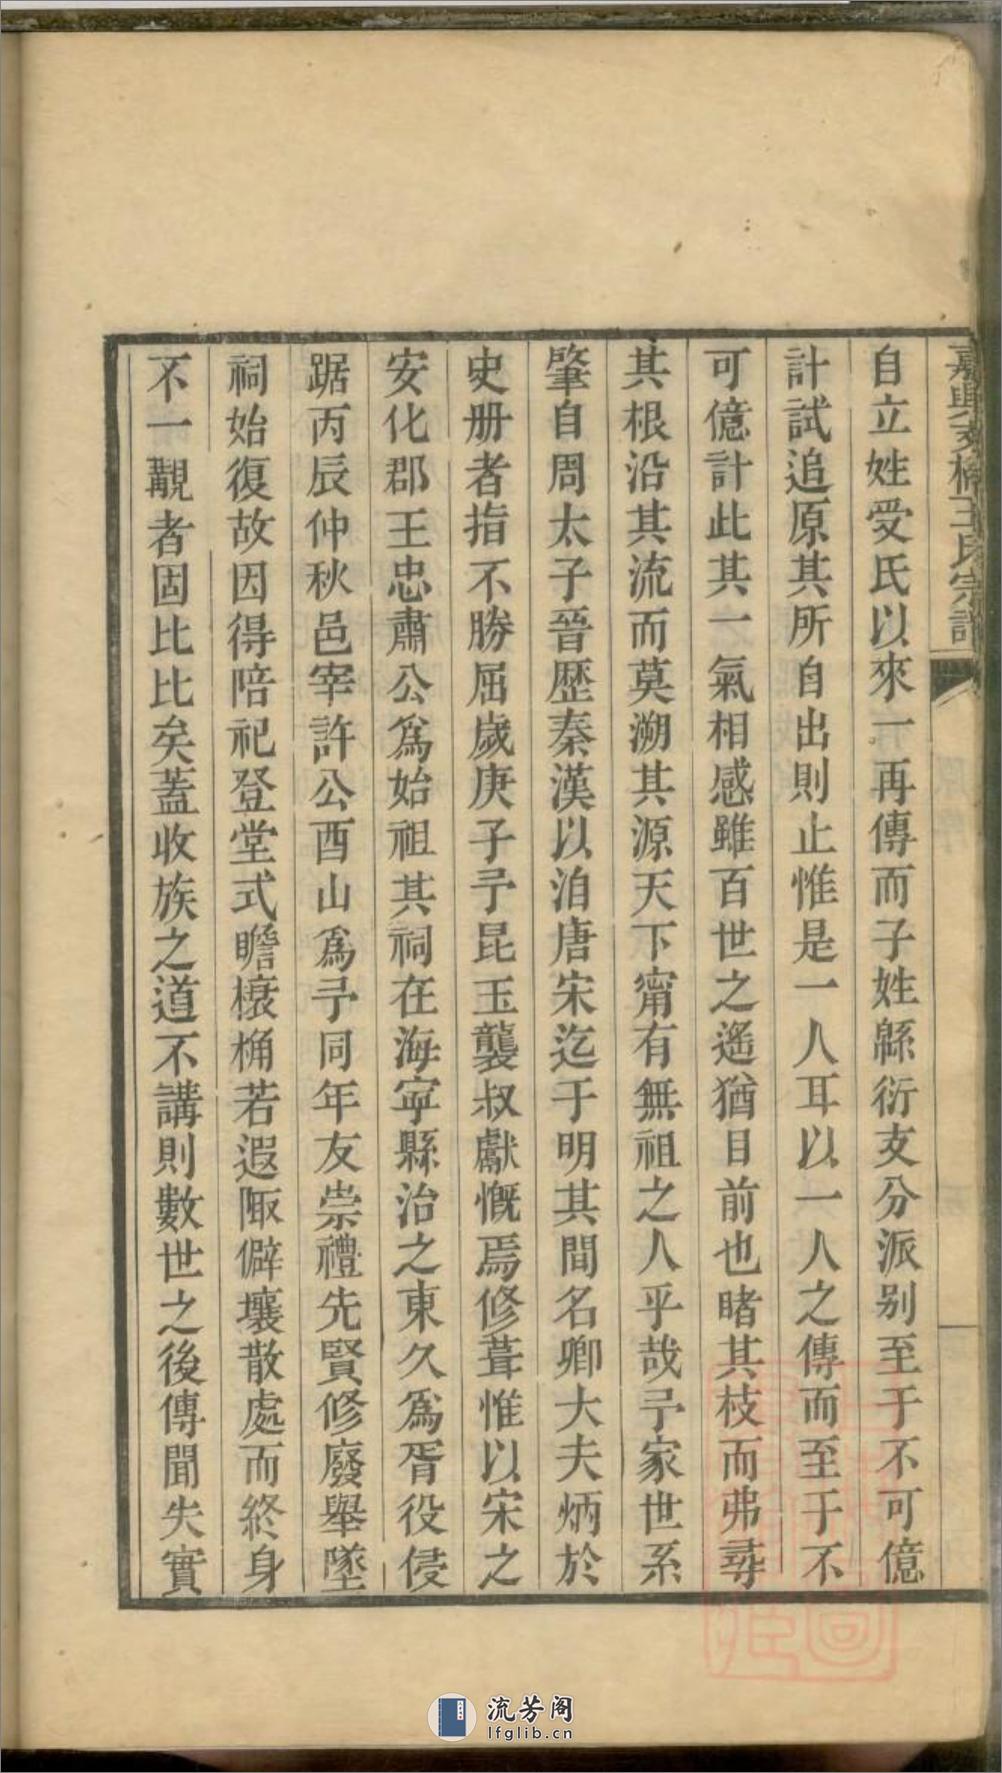 嘉興
王氏宗譜
自立姓受氏以來一再傳而子姓緜衍支分派別至于不可億
計試追原其所自出則止惟是一人耳以一人之傳而至于不
可億計此其一氣相感雖百世之遙猶目前也睹其枝而弗尋
其根沿其流而莫溯其源天下甯有無祖之人乎哉予家世系
肇自周太子晉歷秦漢以洎唐宋迄于明其間名卿大夫炳於
史册者指不勝屈歲庚子予昆玉襲叔獻慨焉修葺惟以宋之
安化郡王忠肅公爲始祖其祠在海寧縣治之東久爲胥役侵
踞丙辰仲秋邑宰許公酉山爲予同年友崇禮先賢修廢舉墜
祠始復故因得陪祀登堂式瞻榱桷若遐陬僻壤散處而終身
不一覯者固比比矣蓋收族之道不講則數世之後傳聞失實
流芳阁
lfglib.cn